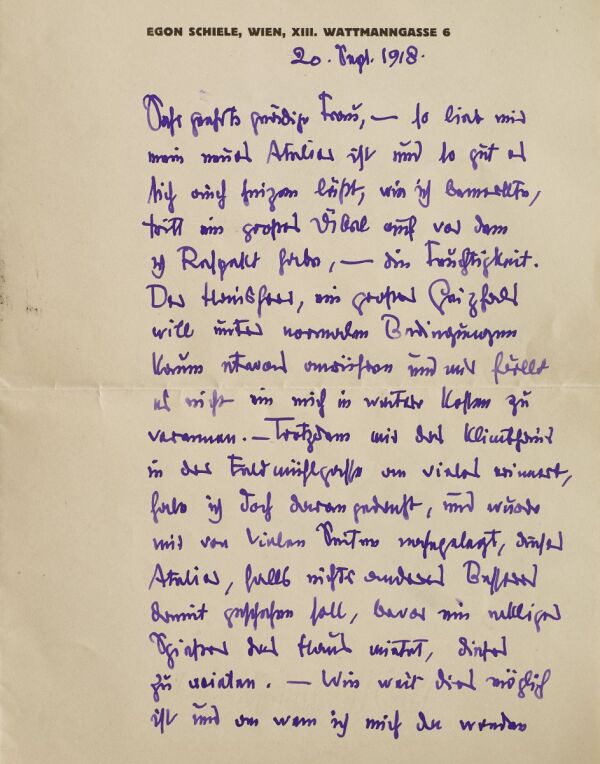 EGON SCHIELE, WIEN, XIII. WATTMANNGASSE 6
20. Sept. 1918.
Sehr geehrte gnädige Frau, — so lieb mir
mein neues Atelier ist und so gut es
sich auch heizen läßt, wie ich bemerkte,
tritt ein großes Übel auf vor dem
ich Respekt habe, — die Feuchtigkeit.
Der Hausherr, ein großer Geizhals
will unter normalen Bedingungen
kaum etwas ausführen und mir fällt
es nicht ein mich in weitere Kosten zu
verrennen. — Trotzdem mir das Klimthaus
in der Feldmühlgasse an vieles erinnert,
habe ich doch daran gedacht, und wurde
mir von vielen Seiten nahegelegt, dieses
Atelier, falls nichts anderes Besseres
damit geschehen soll, bevor ein
Spiesser das Haus mietet, dieses
zu mieten. — Wie weit dies möglich
ist und an wem ich mich da wenden